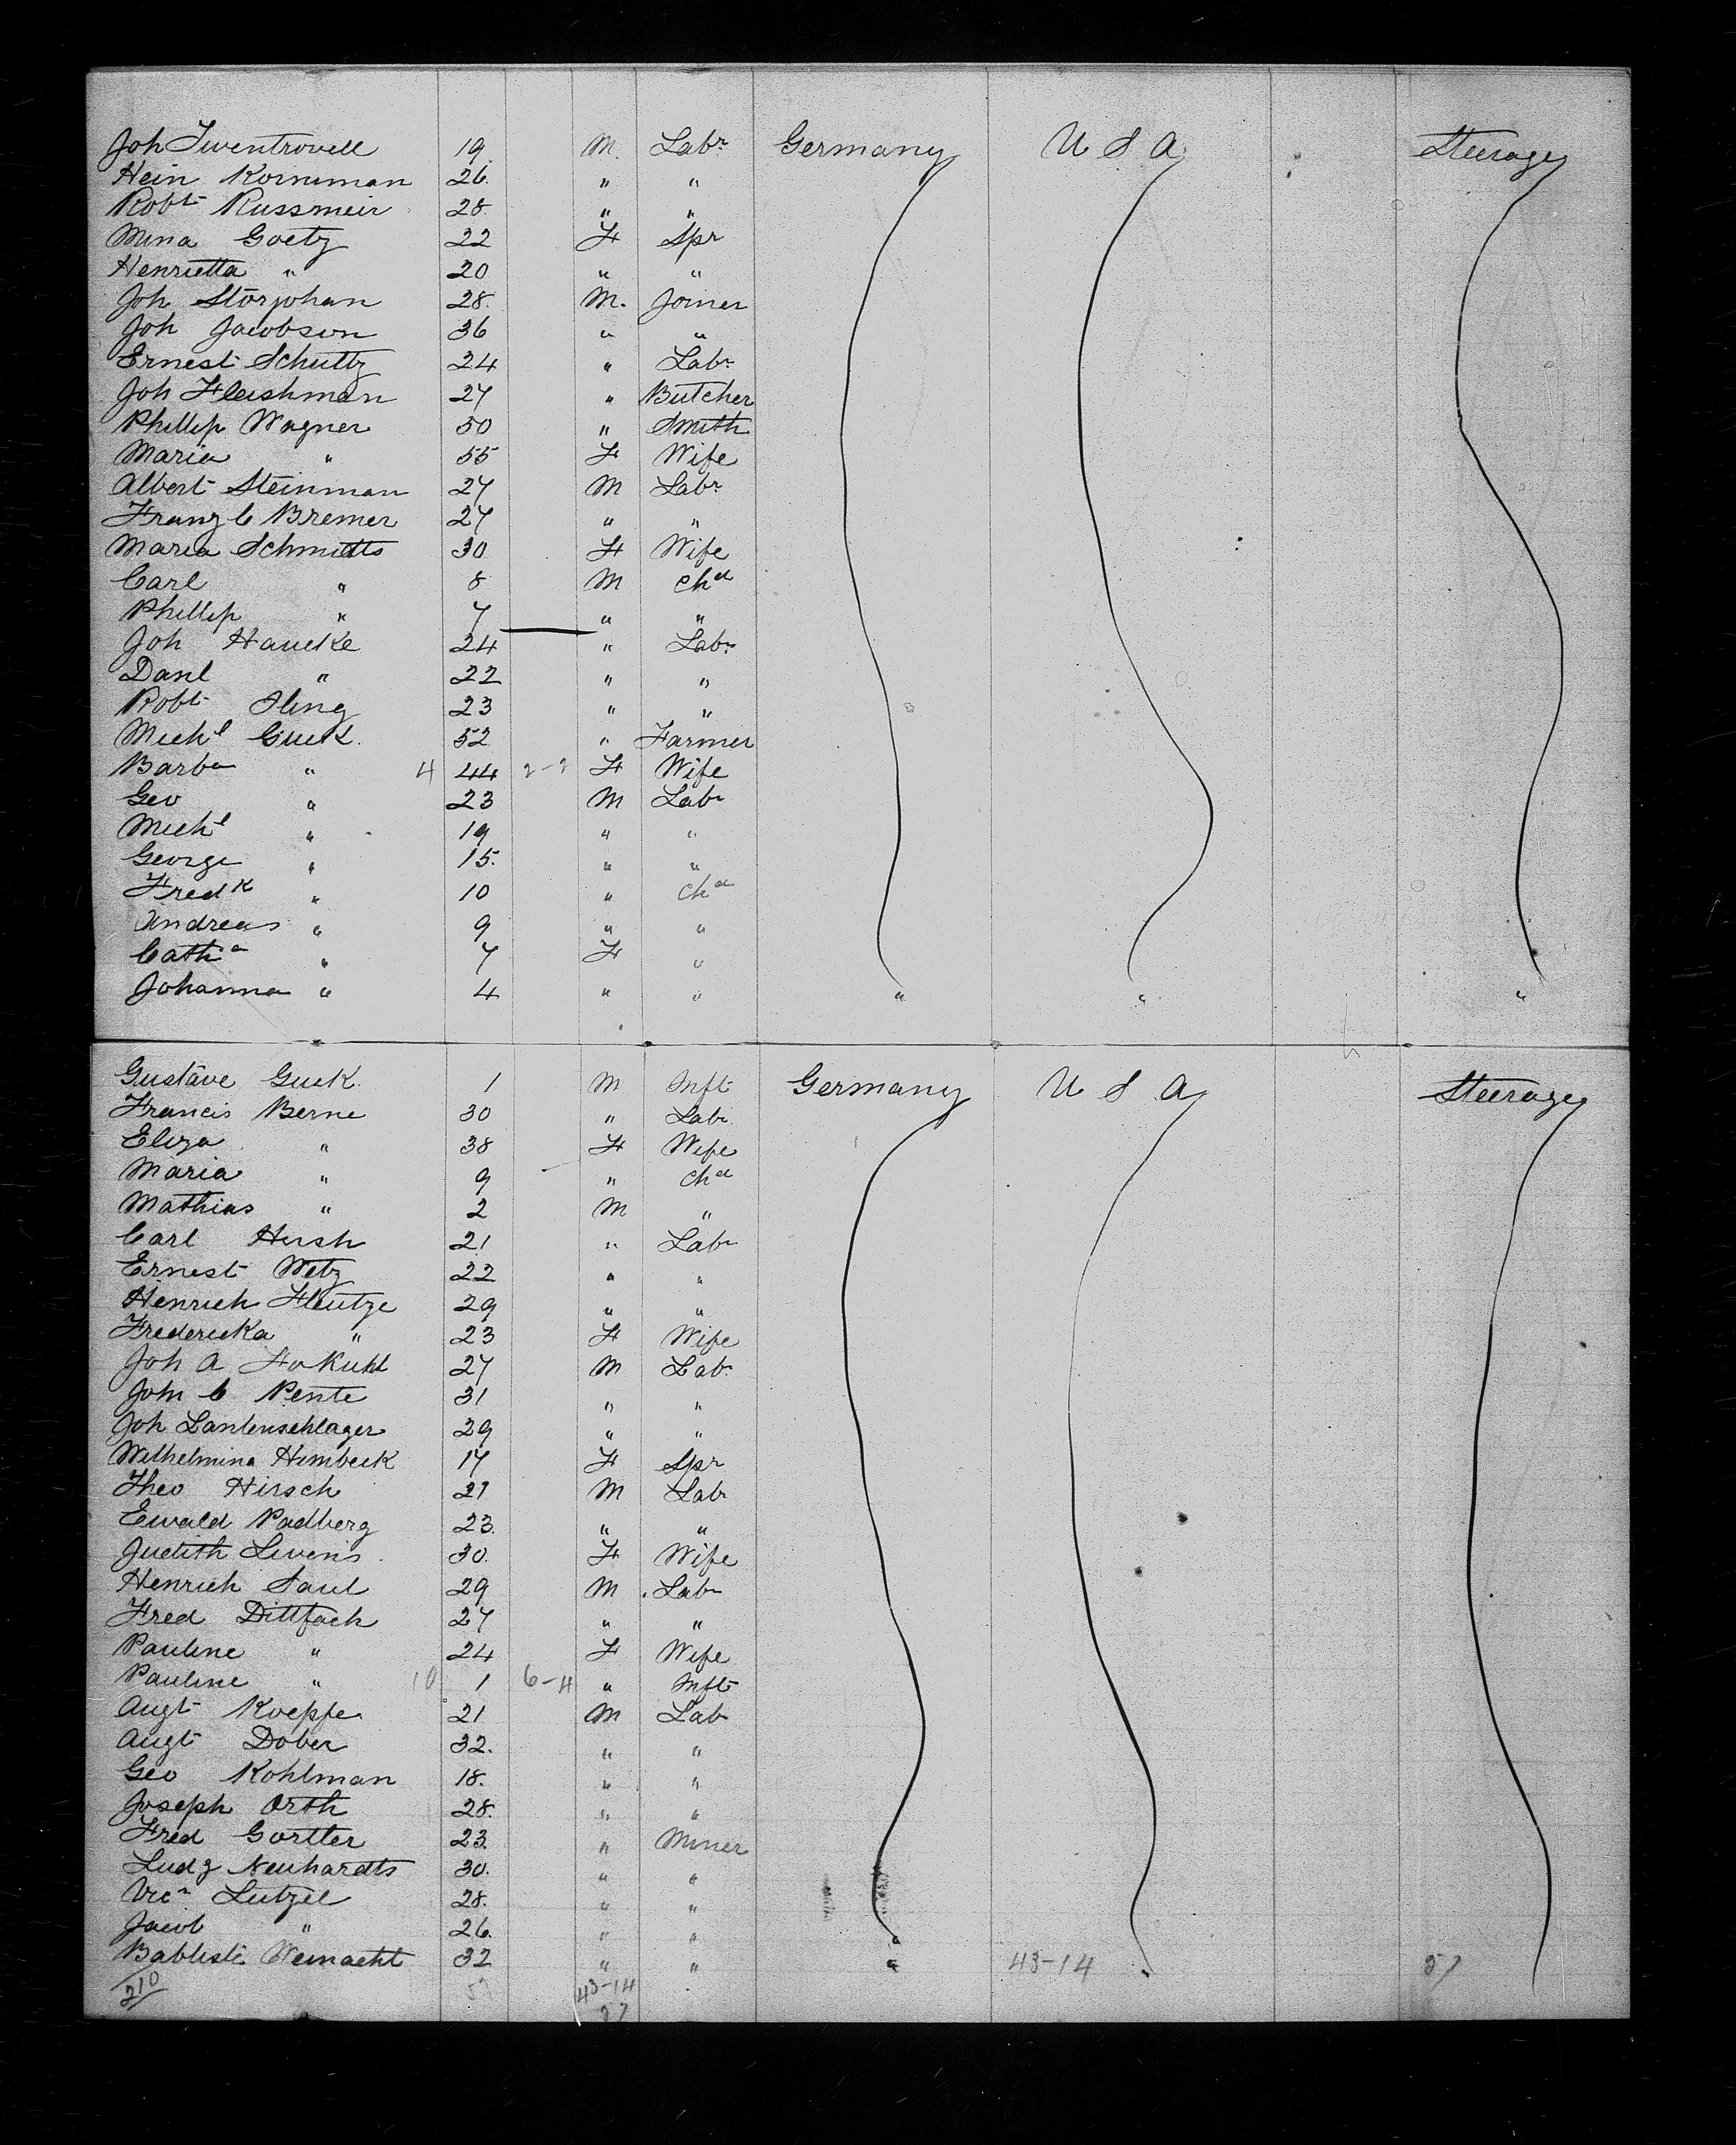 Joh Twentrovell 19 M. Labr Germany U S A Steerage
Hein Korniman 26 " "
Robt Russmeir 28 " "
Mina Goetz 22 F Spr
Henrietta " 20 " "
Joh Storjohan 28 M. Joiner
Joh Jacobson 36 " "
Ernest Schultz 24 " Labr
Joh Fleishman 27 " Butcher
Phillip Wagner 50 " Smith
Maria " 55 F Wife
Albert Steinman 27 M Labr
Franz C Bremer 27 " "
Maria Schmidts 30 F Wife
Carl " 8 M Chd
Phillip " 7 " "
Joh Haucke 24 " Labr
Danl " 22 " "
Robt Iling 23 " "
Michl Guck 52 " Farmer
Barba " 4 44 2-2 F Wife
Geo " 23 M Labr
Michl " 19 " "
George " 15 " "
Fredk " 10 " Chd
Andreas " 9 " "
Catha " 7 F "
Johanna " 4 " " " " "
Gustave Guck 1 M Inft Germany U S A Steerage
Francis Berne 30 " Labr
Eliza " 38 F Wife
Maria " 9 " Chd
Mathias " 2 M "
Carl Hirsh 21 " Labr
Ernest Wetz 22 " "
Henrich Fleutze 29 " "
Fredericka " 23 F Wife
Joh A Fokuhl 27 M Labr
John C Pente 31 " "
Joh Lantenschlager 29 " "
Wilhelmina Himbeck 17 F Spr
Theo Hirsch 21 M Labr
Ewald Padberg 23 " "
Judith Livens 30 F Wife
Henrich Saul 29 M Labr
Fred Dittfach 27 " "
Pauline " 24 F Wife
Pauline " 10 1 6-4 " Inft
Augt Koeppe 21 M Labr
Augt Dober 32 " "
Geo Kohlman 18 " "
Joseph Orth 28 " "
Fred Gortler 23 " Miner
Ludg Neuhardts 30 " "
Vicr Lutzel 28 " "
Jacob " 26 " " "
Babtiste Weinacht 32 " " " 43-14 " 57
210 57 43-14
57